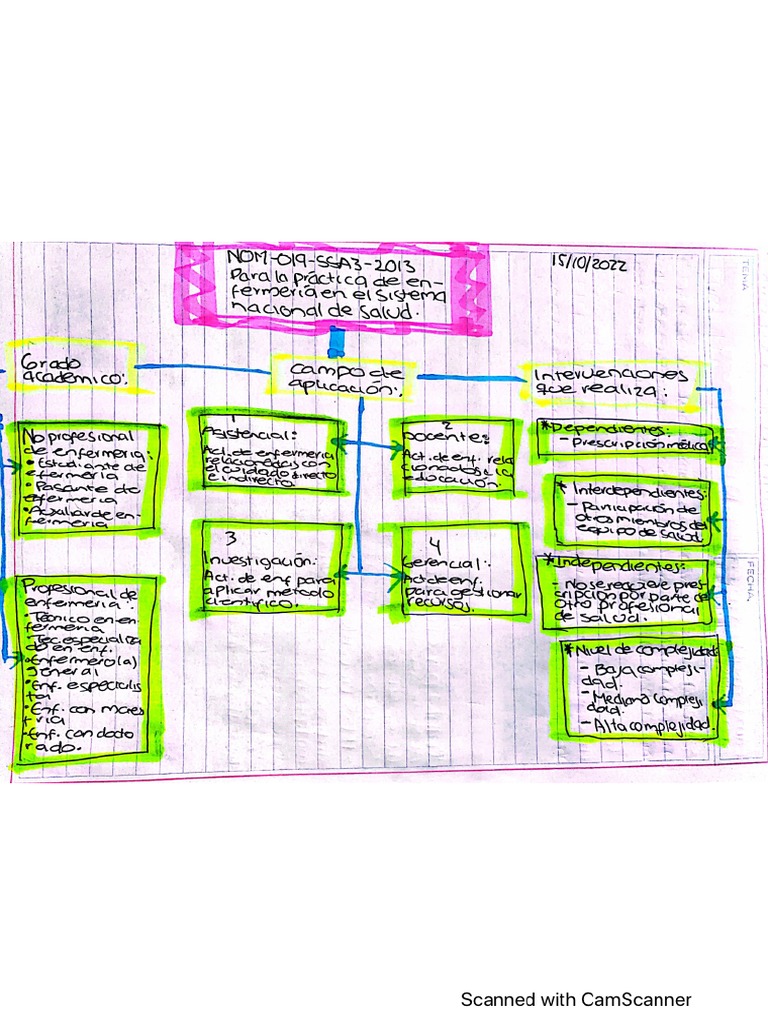 NOM-019-SSA3-2013
Para la práctica de en-
fermería en el sistema
nacional de salud.
15/10/2022
TEMA
FECHA
Grado
académico:
Campo de
aplicación:
Intervenciones
que realiza:
No profesional
de enfermería:
• Estudiante de
enfermería
• Pasante de
enfermería
• Auxiliar de en-
fermería
Profesional de
enfermería:
• Técnico en en-
fermería
• Tec. especializa
do en enf.
• Enfermero(a)
General
• Enf. especialis
ta
• Enf. con maes
tría
• Enf. con docto
rado.
1
Asistencial:
Act. de enfermería
relacionadas con
el cuidado directo
e indirecto.
2
Docente:
Act. de enf. rela
cionados a la
educación.
3
Investigación:
Act. de enf para
aplicar metodo
científico.
4
Gerencial:
Act de enf.
para gestionar
recursos.
* Dependientes:
- Prescripción médica
* Interdependientes:
- Participación de
otros miembros del
equipo de salud.
* Independientes:
- No se requiere pres-
cripción por parte de
otro profesional
de salud.
* Nivel de complejidad
- Baja compleji-
dad.
- Mediana compleji
dad.
- Alta complejidad.
Scanned with CamScanner